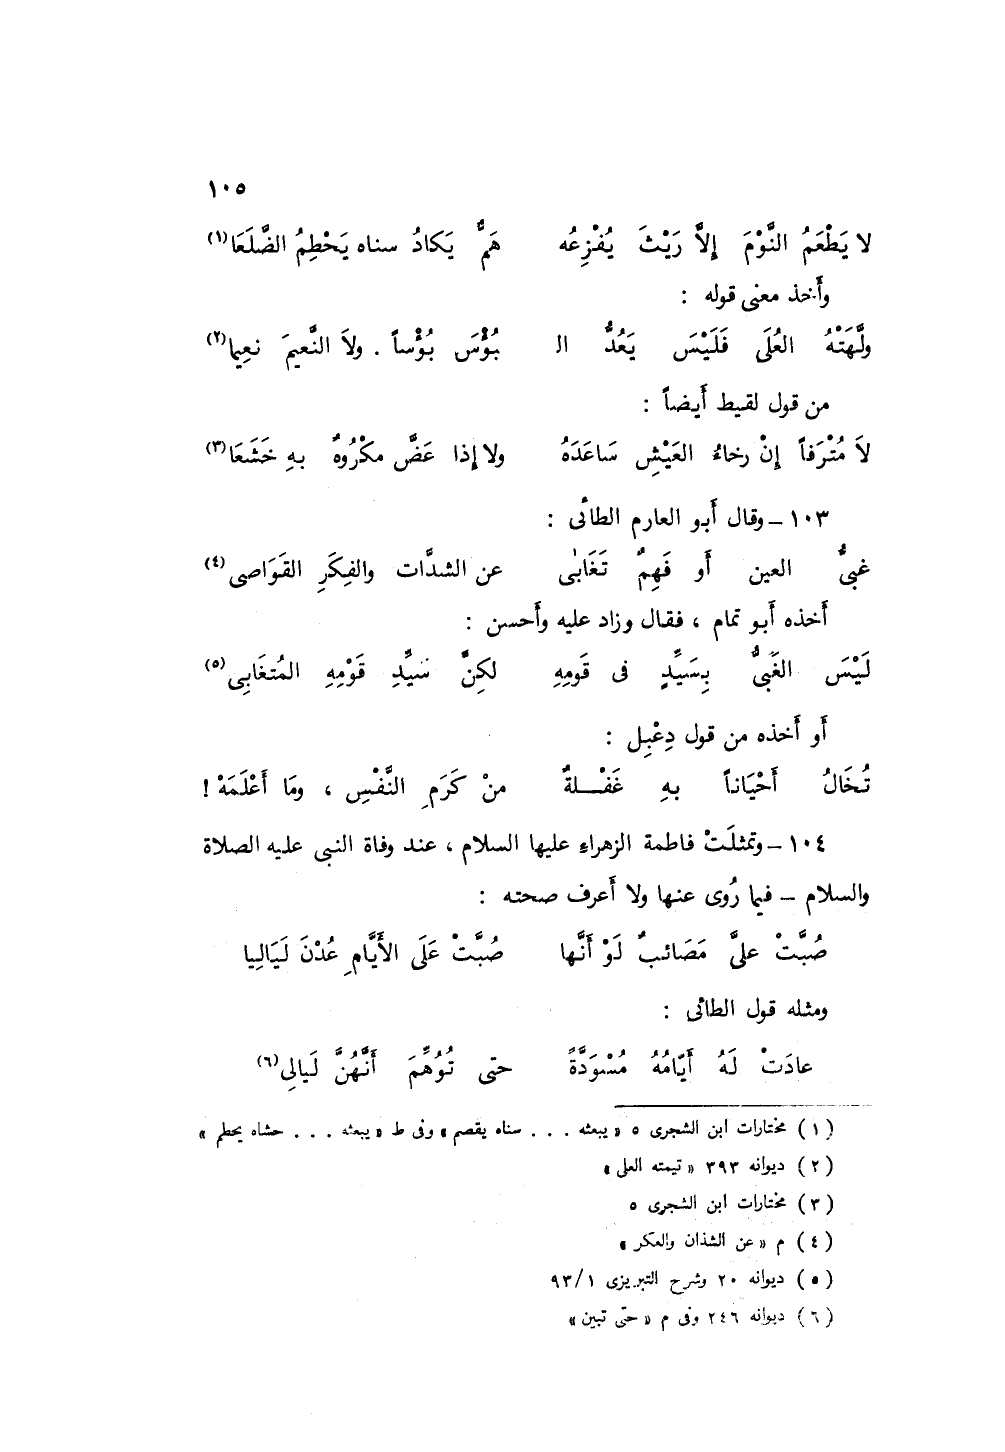 ١٠٥
لا يَطْعَمُ النَّوْمَ إِلاَّ رَيْثَ يُفْزِعُه هَمٌّ يَكادُ سناه يَحْطِمُ الضَّلَعَا(١)
وأَخذ معنى قوله :
ولَّهَتْهُ العُلَى فَلَيْسَ يَعُدُّ الـ بُؤْسَ بُؤْساً . ولاَ النَّعيمَ نعِيما(٢)
من قول لقيط أَيضاً :
لاَ مُتْرَفاً إِنْ رخاءُ العَيْشِ سَاعَدَهُ ولا إِذا عَضَّ مكْرُوهٌ بهِ خَشَعَا(٣)
١٠٣ – وقال أَبو العارم الطائى :
غبىُّ العين أَو فَهِمٌ تَغَابَى عن الشدَّات والفِكَرِ القَوَاصى(٤)
أَخذه أَبو تمام ، فقال وزاد عليه وأَحسن :
لَيْسَ الغَبىُّ بِسَيِّدٍ فى قَومِهِ لكِنَّ سَيِّدِ قَوْمِهِ المُتغَابِى(٥)
أَو أَخذه من قول دِعْبِل :
تُخَالُ أَحْيَاناً بهِ غَفْـــلةٌ منْ كَرَمِ النَّفْسِ ، ومَا أَعْلَمَهْ !
١٠٤ – وتمثلَتْ فاطمة الزهراءِ عليها السلام ، عند وفاة النبى عليه الصلاة
والسلام – فيما رُوى عنها ولا أَعرف صحته :
صُبَّتْ علىَّ مَصَائبٌ لَوْ أَنَّها صُبَّتْ عَلَى الأَيَّامِ عُدْنَ لَيَالِيا
ومثله قول الطائى :
عادَتْ لَهُ أَيّامُهُ مُسْوَدَّةً حتى تُوُهِّمَ أَنَّهُنَّ لَيالِى(٦)
(١) مختارات ابن الشجرى ٥ « يبعثه . . . سناه يقصم » وفى ط « يبعثه . . . حشاه يحطم »
(٢) ديوانه ٣٩٣ « تيمته العلى »
(٣) مختارات ابن الشجرى ٥
(٤) م « عن الشذان والعكر »
(٥) ديوانه ٢٠ وشرح التبريزى ١/ ٩٣
(٦) ديوانه ٢٤٦ وفى م « حتى تبين »